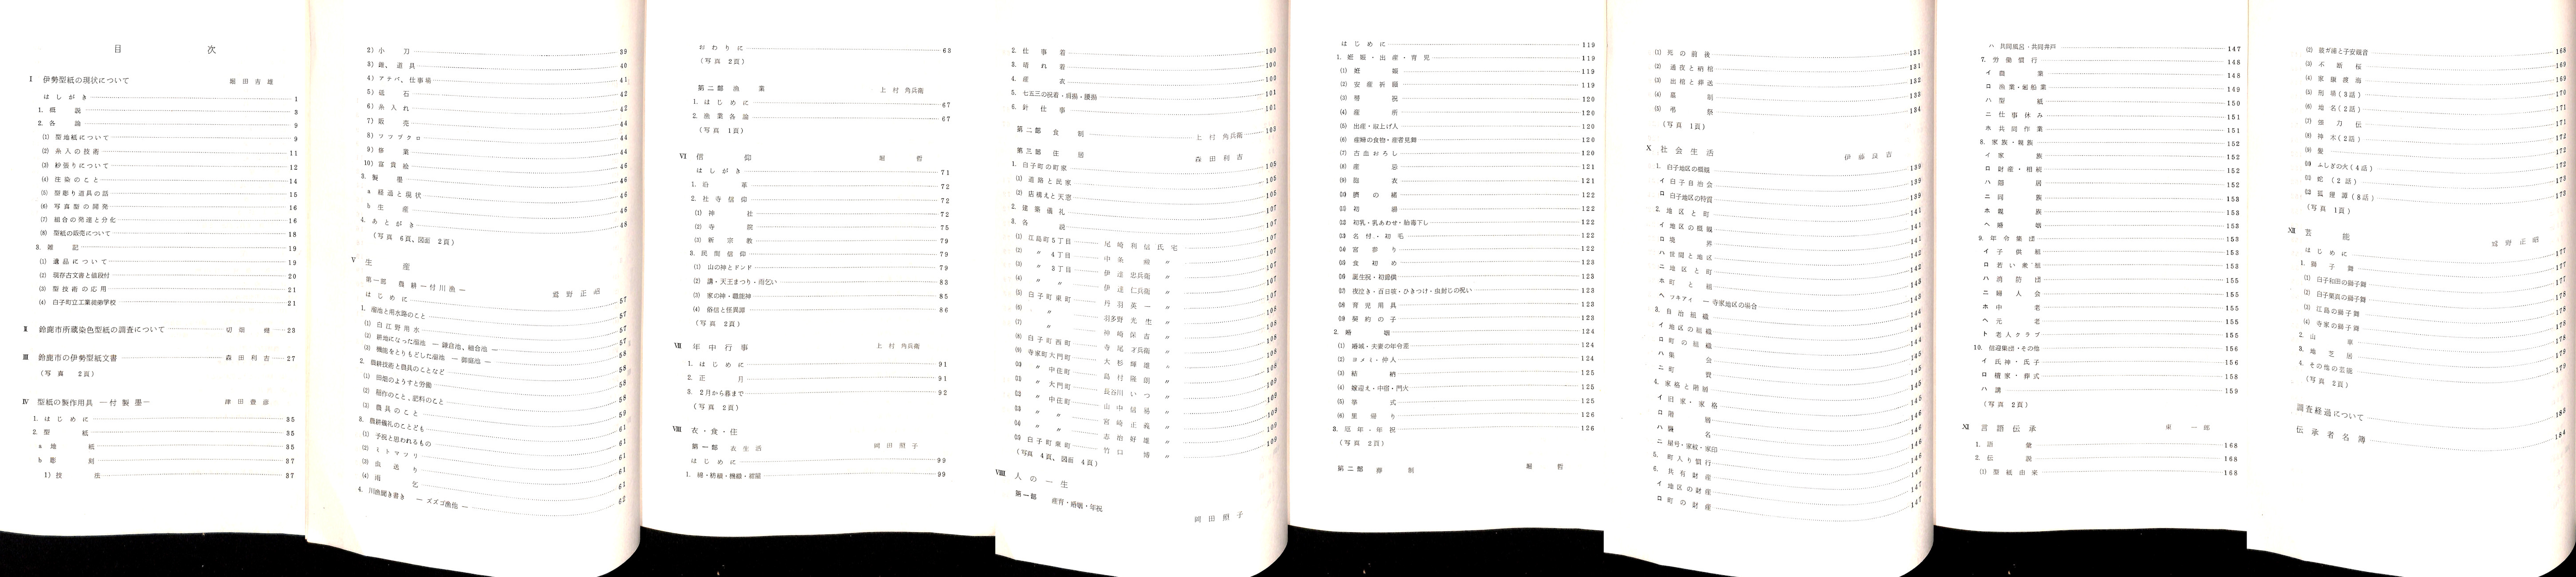 目　次
I 伊勢型紙の現状について 堀田吉雄
はしがき 1
1. 概説 3
2. 各論 9
(1) 型地紙について 9
(2) 糸入の技術 11
(3) 紗張りについて 12
(4) 注染のこと 14
(5) 型彫り道具の話 15
(6) 写真型の開発 16
(7) 組合の発達と分化 16
(8) 型紙の販売について 18
3. 雑記 19
(1) 遺品について 19
(2) 現存古文書と値段付 20
(3) 型技術の応用 21
(4) 白子町立工業徒弟学校 21
II 鈴鹿市所蔵染色型紙の調査について 切畑健 23
III 鈴鹿市の伊勢型紙文書 森田利吉 27
(写真 2頁)
IV 型紙の製作用具 ―付 製墨― 津田豊彦
1. はじめに 35
2. 型紙 35
a 地紙 35
b 彫刻 37
1) 技法 37
2) 小刀 39
3) 錐、道具 40
4) アテバ、仕事場 41
5) 砥石 42
6) 糸入れ 42
7) 販売 44
8) ツツヅクロ 44
9) 祭業 44
10) 富貴絵 46
3. 製墨 46
a 経過と現状 46
b 生産 46
4. あとがき 48
(写真 6頁、図面 2頁)
V 生産
第一部 農耕 ―付川漁― 鷲野正昭
はじめに 57
1. 溜池と用水路のこと 57
(1) 白江野用水 57
(2) 耕地になった溜池 ― 鎌倉池、融合池 ― 57
(3) 機能をとりもどした溜池 ― 御臨池 ― 58
2. 農耕技術と農具のことなど 58
(1) 田畑のようすと労働 58
(2) 稲作のこと、肥料のこと 58
(3) 農具のこと 59
3. 農耕儀礼のことども 61
(1) 予祝と思われるもの 61
(2) ミトマツリ 61
(3) 虫送り 61
(4) 雨乞 61
4. 川漁聞き書き ― ズズゴ漁他 ― 62
おわりに 63
(写真 2頁)
第二部 漁業 上村角兵衛
1. はじめに 67
2. 漁業各論 67
(写真 1頁)
VI 信仰 堀哲
はしがき 71
1. 沿革 72
2. 社寺信仰 72
(1) 神社 72
(2) 寺院 75
(3) 新宗教 79
3. 民間信仰 79
(1) 山の神とドンド 79
(2) 講・天王まつり・雨乞い 83
(3) 家の神・職能神 85
(4) 俗信と怪異譚 86
(写真 2頁)
VII 年中行事 上村角兵衛
1. はじめに 91
2. 正月 91
3. 2月から暮まで 92
(写真 2頁)
VIII 衣・食・住
第一部 衣生活 岡田照子
はじめに 99
1. 綿・紡績・機織・紺屋 99
2. 仕事着 100
3. 晴れ着 100
4. 産衣 100
5. 七五三の祝着・肩揚・腰揚 101
6. 針仕事 101
第二部 食制 上村角兵衛 103
第三部 住居 森田利吉
1. 白子町の町家 105
(1) 道路と民家 105
(2) 店構えと天窓 105
2. 建築儀礼 107
3. 各説 107
(1) 江島町5丁目 尾崎利信氏宅 107
(2) 〃 4丁目 中条 〃 107
(3) 〃 3丁目 伊達忠兵衛 〃 107
(4) 〃 〃 伊達仁兵衛 〃 107
(5) 白子町東町 丹羽英一 〃 107
(6) 〃 羽多野光生 〃 108
(7) 〃 神崎保吉 〃 108
(8) 白子町西町 寺尾才兵衛 〃 108
(9) 寺家町大門町 大杉輝雄 〃 108
(10) 〃 中住町 島村隆朗 〃 108
(11) 〃 大門町 長谷川いつ 〃 109
(12) 〃 中住町 山中信易 〃 109
(13) 〃 〃 宮崎正義 〃 109
(14) 〃 〃 志治好雄 〃 109
(15) 白子町東町 竹口博 〃 109
(写真 4頁、図面 4頁)
VIII 人の一生
第一部 産育・婚姻・年祝 岡田照子
はじめに 119
1. 妊娠・出産・育児 119
(1) 妊娠 119
(2) 安産祈願 119
(3) 帯祝 120
(4) 産所 120
(5) 出産・取上げ人 120
(6) 産婦の食物・産者見舞 120
(7) 古血おろし 120
(8) 産忌 121
(9) 胞衣 121
(10) 臍の緒 122
(11) 初湯 122
(12) 初乳・乳あわせ・胎毒下し 122
(13) 名付・初毛 122
(14) 宮参り 122
(15) 食初め 123
(16) 誕生祝・初節供 123
(17) 夜泣き・百日咳・ひきつけ・虫封じの呪い 123
(18) 育児用具 123
(19) 契約の子 124
2. 婚姻 124
(1) 婚域・夫妻の年令差 124
(2) ヨメミ・仲人 124
(3) 結納 125
(4) 嫁迎え・中宿・門火 125
(5) 挙式 125
(6) 里帰り 126
3. 厄年・年祝 126
(写真 2頁)
第二部 葬制 堀哲
(1) 死の前後 131
(2) 通夜と納棺 131
(3) 出棺と葬送 132
(4) 墓制 133
(5) 弔祭 134
(写真 1頁)
X 社会生活 伊藤良吉
1. 白子地区の概観 139
イ 白子自治会
ロ 白子地区の特質
2. 地区と町 141
イ 地区の概観 141
ロ 境界 141
ハ 世間と地区 142
ニ 地区と町 142
ホ 町と組 143
ヘ ツキアイ ― 寺家地区の場合 143
3. 自治組織 144
イ 地区の組織 144
ロ 町の組織 144
ハ 集会 145
ニ 町費 145
4. 家格と階層 145
イ 旧家・家格 145
ロ 階層 146
ハ 職名 146
ニ 屋号・家紋・家印 146
5. 町入り慣行 146
6. 共有財産 147
イ 地区の財産 147
ロ 町の財産 147
ハ 共同風呂・共同井戸 147
7. 労働慣行 148
イ 農業 148
ロ 漁業・廻船業 149
ハ 型紙 150
ニ 仕事休み 151
ホ 共同作業 151
8. 家族・親族 152
イ 家族 152
ロ 財産・相続 152
ハ 隠居 152
ニ 同族 153
ホ 親族 153
ヘ 婚姻 153
9. 年令集団 153
イ 子供組 153
ロ 若い衆組 153
ハ 消防団 155
ニ 婦人会 155
ホ 中老 155
ヘ 元老 155
ト 老人クラブ 155
10. 信仰集団・その他 156
イ 氏神・氏子 156
ロ 檀家・葬式 158
ハ 講 159
(写真 2頁)
XI 言語伝承 東一郎
1. 語彙 168
2. 伝説 168
(1) 型紙由来 168
(2) 鼓ガ浦と子安観音 168
(3) 不断桜 169
(4) 家康渡海 169
(5) 刑場(3話) 170
(6) 地名(2話) 171
(7) 171
(8) 神木(2話) 172
(9) 172
(10) ふしぎの火(4話) 172
(11) 蛇(2話) 173
(12) 狐狸譚(8話) 173
(写真 1頁)
XII 芸能 鷲野正昭
はじめに 177
1. 獅子舞 177
(1) 白子和田の獅子舞 177
(2) 白子東浜の獅子舞 178
(3) 江島の獅子舞 178
(4) 寺家の獅子舞 178
2. 山車 178
3. 地芝居 179
4. その他の芸能 179
(写真 2頁)
調査経過について 183
伝承者名簿 184